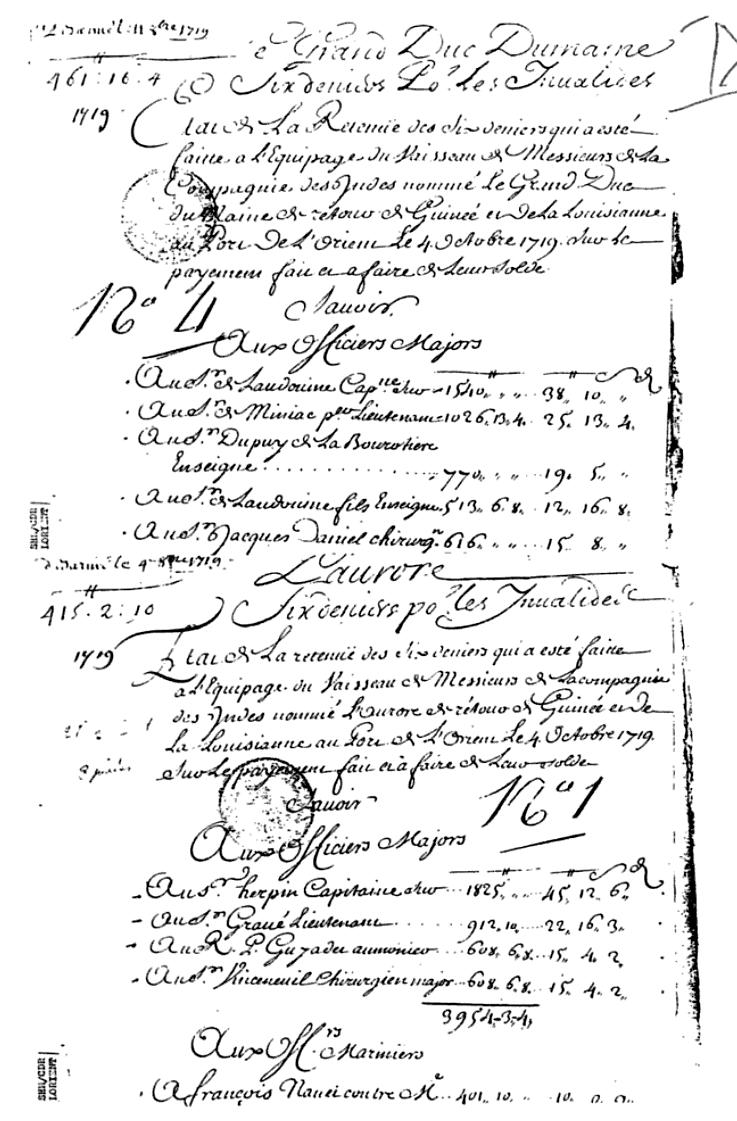 1719
Le Grand Duc Dumaine
461 : 16 . 4
Six deniers Po.r Les Inualides
1719
Etat de La Retenüe des Six deniers qui a esté
faitte a L'Equipage du Vaisseau de Messieurs de La
Compagnie des Indes nommé Le Grand Duc
du Maine de retour de Guinée et De La Louisianne
au Port De L'Orient Le 4 Octobre 1719. Sur Le
payement fait et a faire de Leur Solde
Sauoir
No 4
Aux Officiers Majors
. Au S.r de Laudouine Cap.ne sur - 1540 ,, ,, ,, .. 38 ,, 10 ,, ,,
. Au S.r de Miniac p.er Lieutenant - 1026 ,, 13 ,, 4 . 25 ,, 13 ,, 4
. Au S.r Dupuy de La Bourotiere
Enseigne . . . . 770 ,, ,, ,, .. 19 ,, 5 ,, ,,
. Au S.r de Laudouine fils Enseigne 513 ,, 6 ,, 8 ,, .. 12 ,, 16 ,, 8
. Au S.r Jacques Daniel chirurg.n 616 ,, ,, ,, .. 15 ,, 8 ,, ,,
SHM/CDR
LORIENT
1719
L'aurore
415 . 2 : 10
Six deniers po.r les Inualides
1719
Etat de La retenüe des Six deniers qui a esté faitte
a L'Equipage du Vaisseau de Messieurs de La compagnie
des Indes nommé L'Aurore de retour de Guinée et De
La Louisianne au Port de L'Orient Le 4 Octobre 1719
Sur Le payement fait et a faire de Leur Solde
Sauoir
No 1
Aux Officiers Majors
- Au S.r herpin Capitaine sur ... 1825 ,, ,, .. 45 ,, 12 ,, 6
- Au S.r Graué Lieutenant . . . . 912 ,, 10 .... 22 ,, 16 ,, 3
- Au R. P. aumonier ... 608 ,, 6 ,, 8 .. 15 ,, 4 ,, 2
- Au S.r Chirurgien major .. 608 ,, 6 ,, 8 .. 15 ,, 4 ,, 2
3954 ,, 3 ,, 4
Aux Off.rs Mariniers
. A françois contre M.e .. 401 ,, 10 ,, ,, .. 10 ,,
SHM/CDR
LORIENT